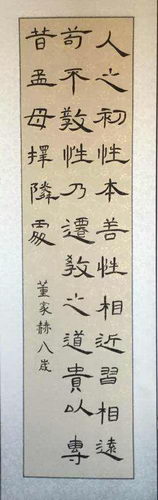 人之初性本善性相近習相遠
苟不教性乃遷教之道貴以專
昔孟母擇隣處
董家赫八歲